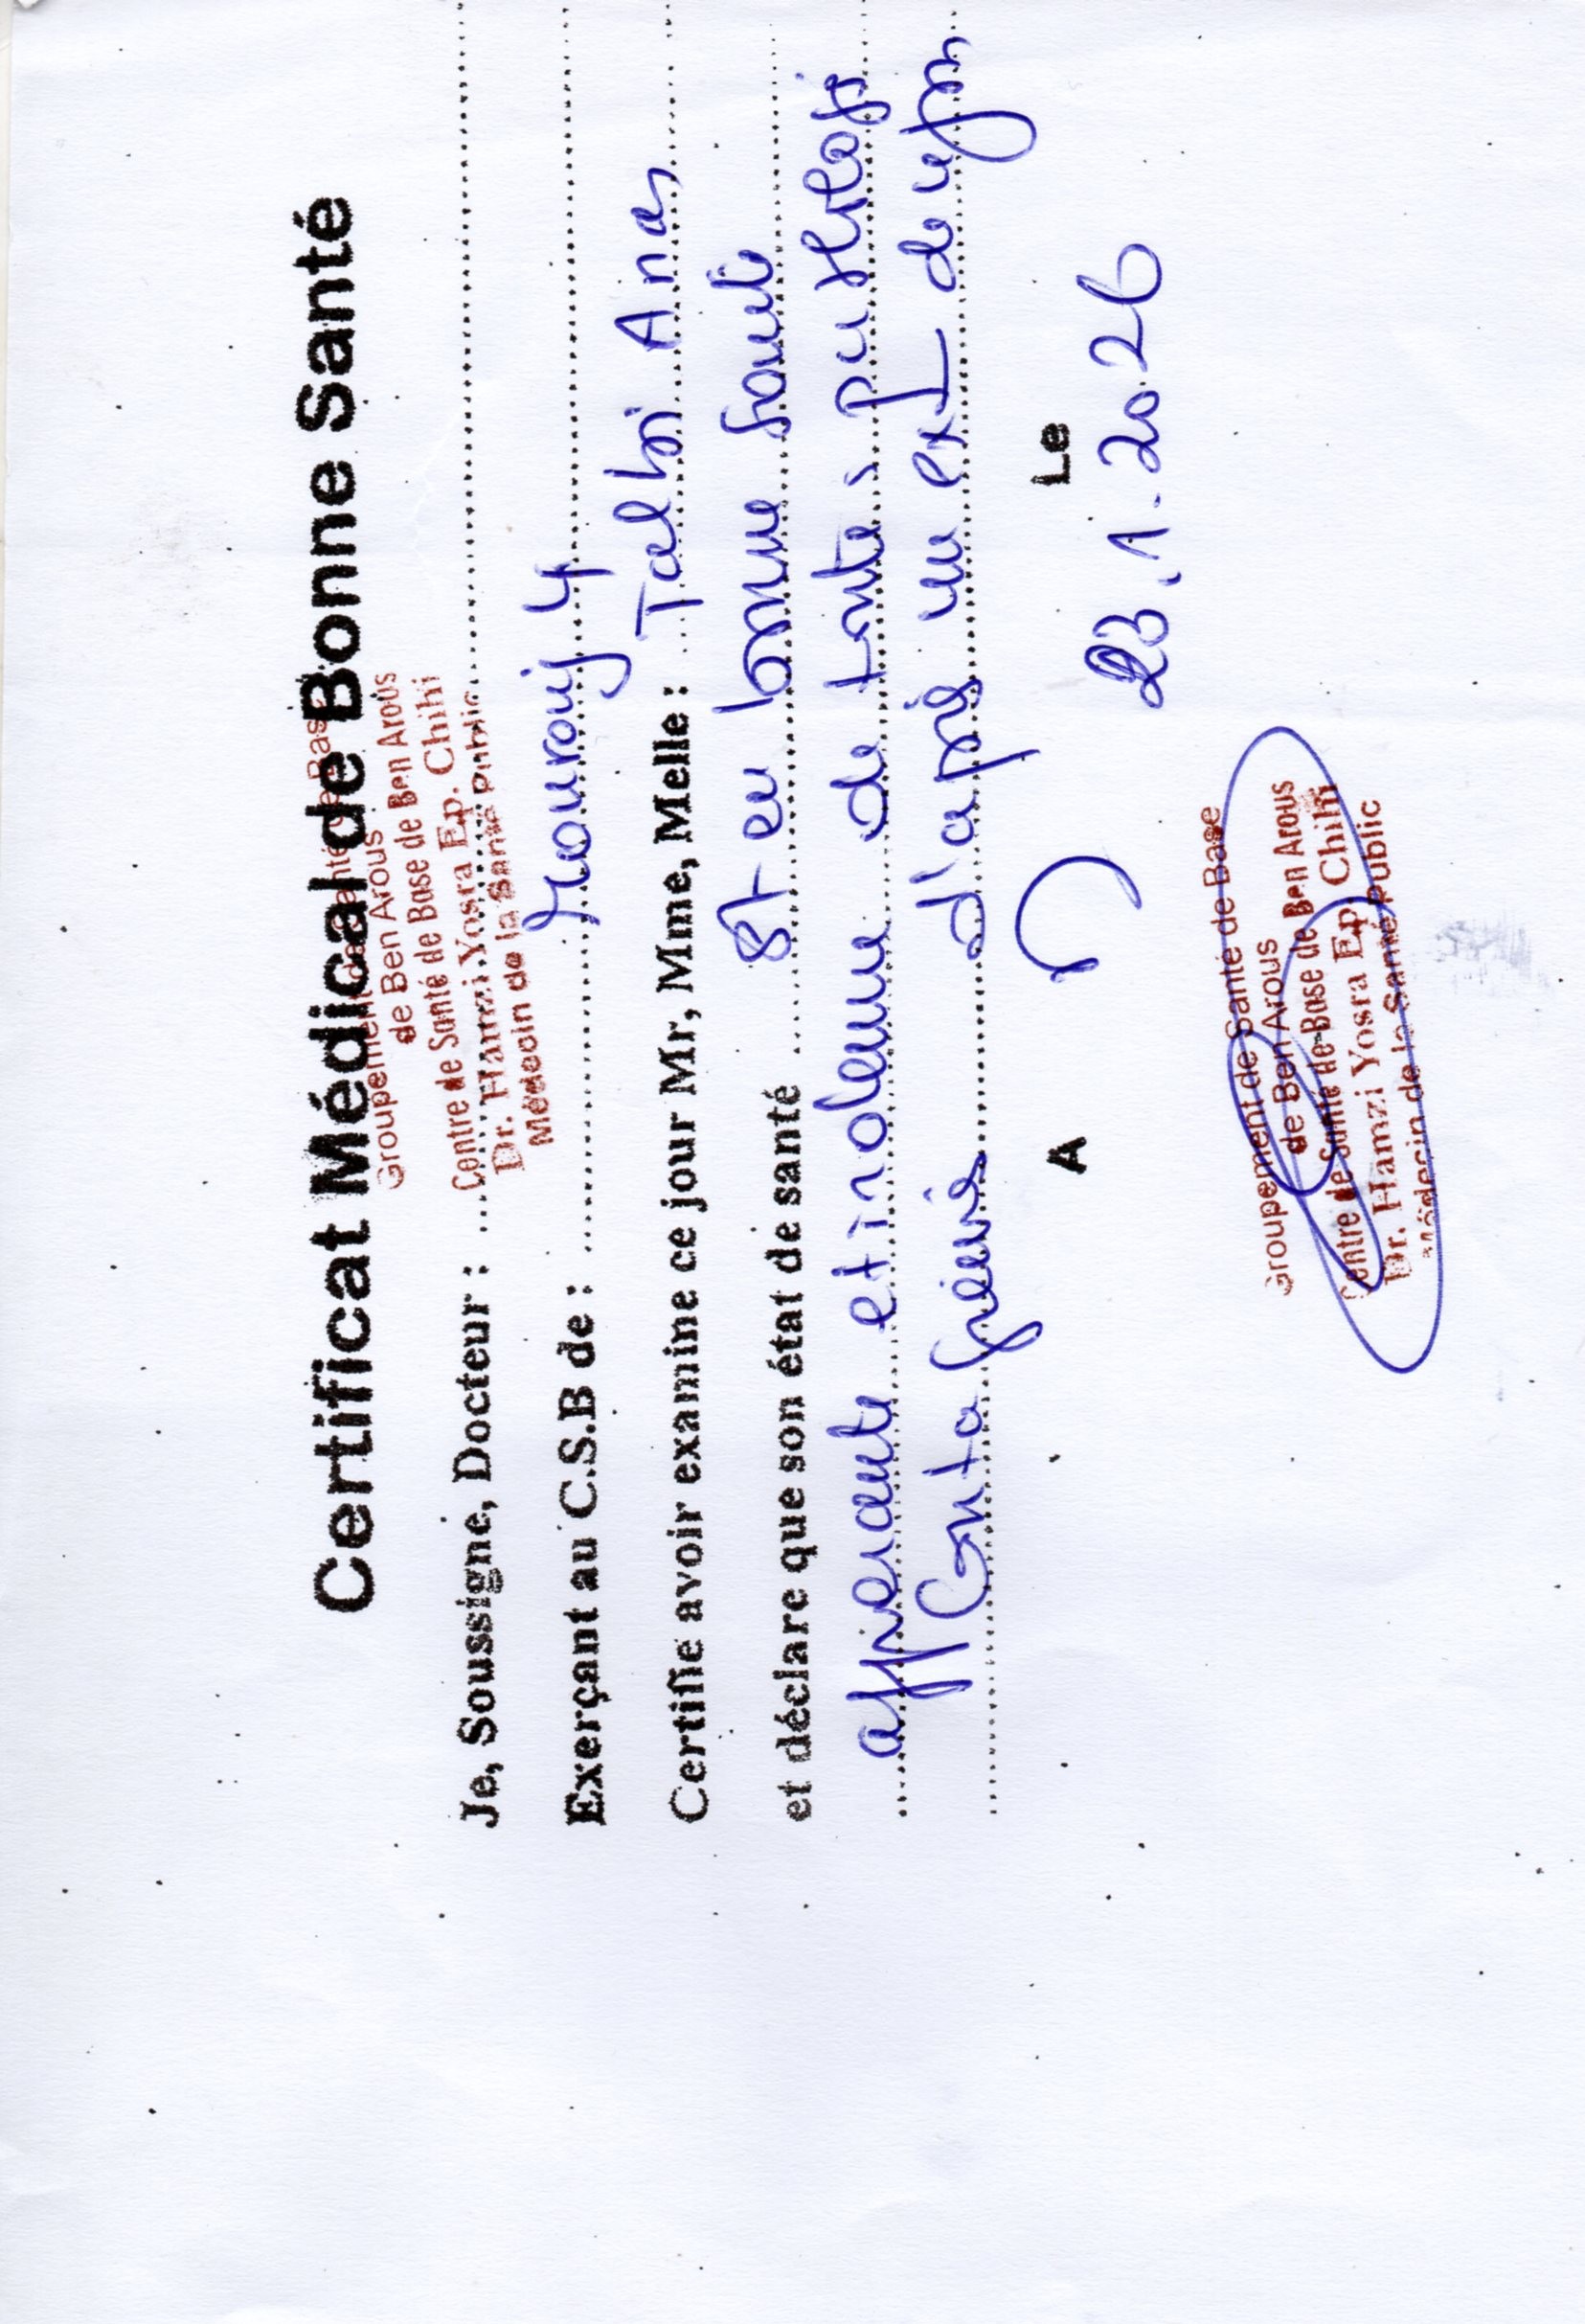 Certificat Médical de Bonne Santé
Groupement de Santé de Base
de Ben Arous
Centre de Santé de Base de Ben Arous
Dr. Hamzi Yosra Ep. Chihi
Médecin de la Santé Public
Je, Soussigne, Docteur :
Exerçant au C.S.B de : Mourouj 4
Certifie avoir examine ce jour Mr, Mme, Melle : Talbi Anas
et déclare que son état de santé est en bonne santé
apparente et indemne de toutes pathologies
Contagieuses d'après un ex de
A Le
23.1.2026
Groupement de Santé de Base
de Ben Arous
Centre de Santé de Base de Ben Arous
Dr. Hamzi Yosra Ep. Chihi
Médecin de la Santé Public